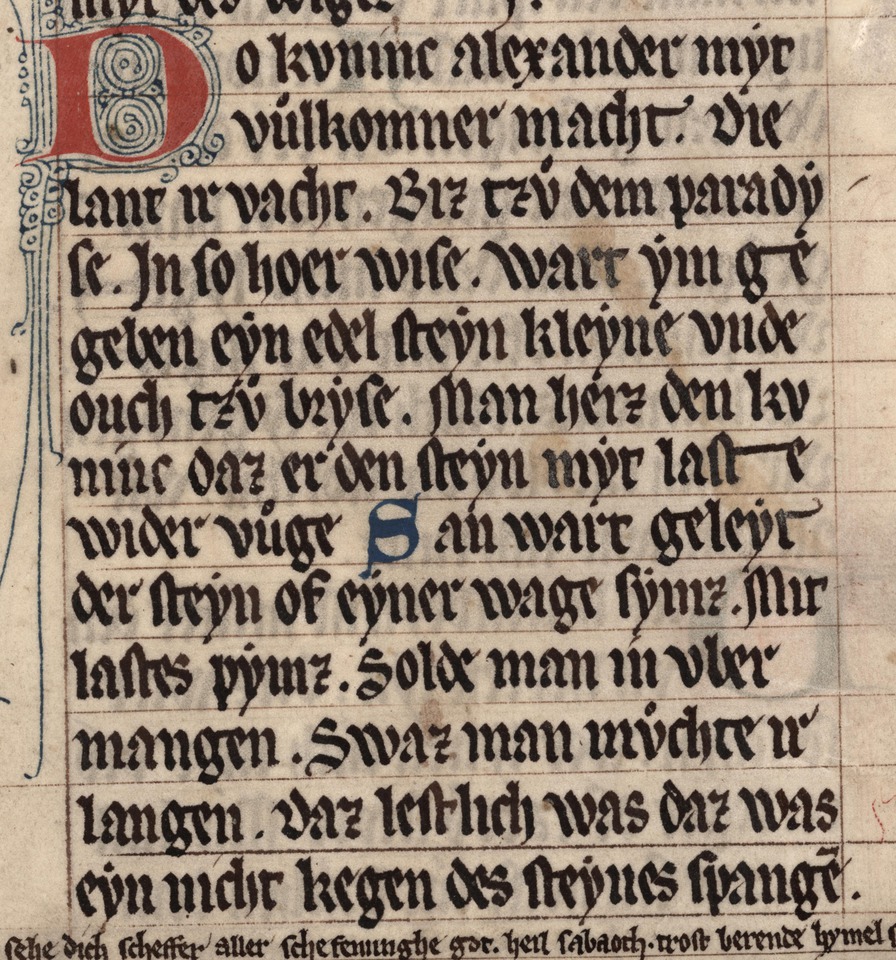 myt des
Do kvninc alexander myt
vůlkomner macht. Die
lant ir vacht. Biz tzů dem parady
se. Jn so hoer wise. wart ẏm ge
geben eẏn edel steẏn kleẏne vnde
ouch tzů brẏse. Man herz den kv
ninc daz er den steẏn mẏt last e
wider vůge San wart geleẏt
der steẏn of eẏner wage sẏmz. Mit
lastes pẏmz. Solde man in vber
mangen. Swaz man můchte ir
langen. Daz lestlich was daz was
eẏn nicht kegen des steẏnes spangē.
sehe dich scheffer aller scheffenunghe got. heil sabaoth. trost berende hymel